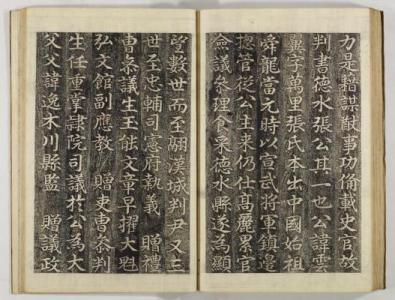 力是藉謀猷事功備載史官故
判書德水張公其一也公諱雲
翼字萬里張氏本出中國始祖
舜龍當元時以宣武將軍鎮邊
揔官從公主来仍仕高麗累官
僉議叅理食菜德水縣遂為顯
望數世而至翮漢城判尹又三
世至忠輔司憲府執義 贈禮
曹叅議生玉能文章早擢大魁
弘文館副應教 贈吏曹叅判
生任重掌隷院司議於公為大
父父諱逸木川縣監 贈議政